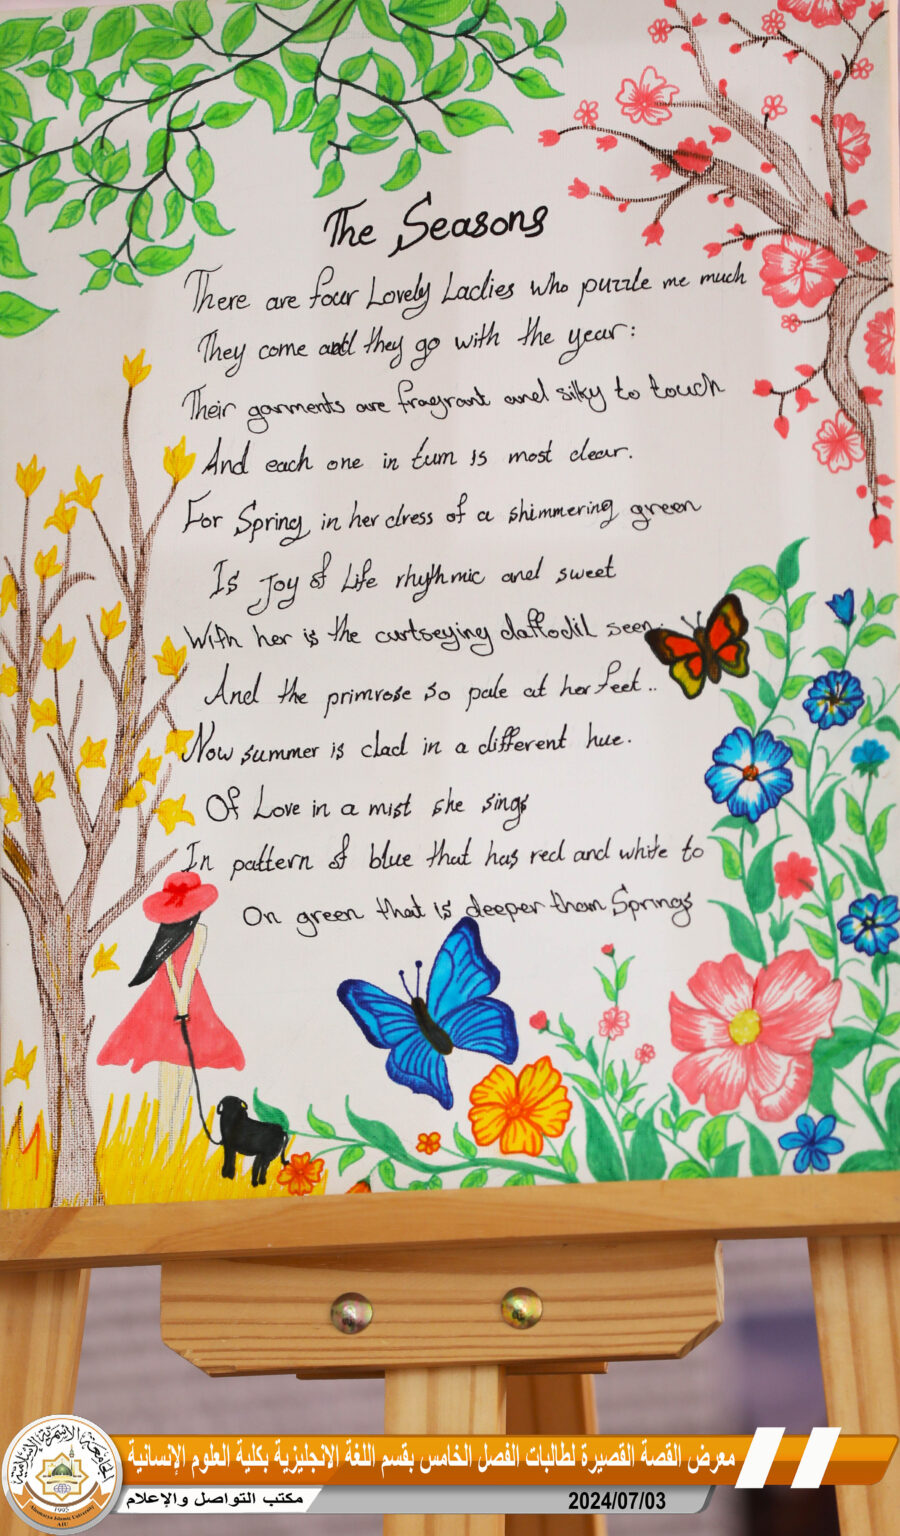 The Seasons
There are four Lovely Ladies who puzzle me much
They come and they go with the year:
Their garments are fragrant and silky to touch
And each one in turn is most clear.
For Spring in her dress of a shimmering green
Is Joy of Life rhythmic and sweet
With her is the curtseying daffodil seen.
And the primrose so pale at her feet..
Now summer is clad in a different hue.
Of Love in a mist she sings
In pattern of blue that has red and white to
On green that is deeper than Springs
معرض القصة القصيرة لطالبات الفصل الخامس بقسم اللغة الانجليزية بكلية العلوم الإنسانية
مكتب التواصل والإعلام
2024/07/03
الجامعة الأسمرية الإسلامية
1995
Alasmarya Islamic University
AIU